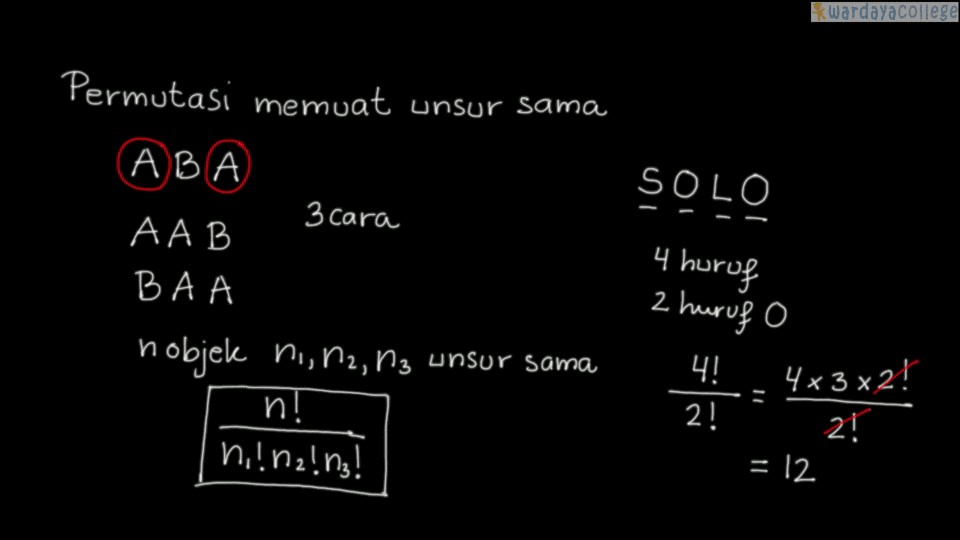 wardayacollege
Permutasi memuat unsur sama
A B A
A A B
B A A
3 cara
n objek n₁, n₂, n₃ unsur sama
n!
n₁! n₂! n₃!
S O L O
4 huruf
2 huruf O
4! / 2! = 4 x 3 x 2! / 2!
= 12